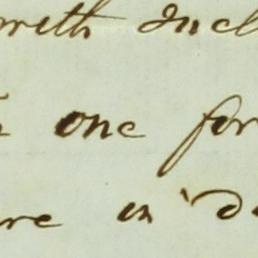 with Incl
one for
re in